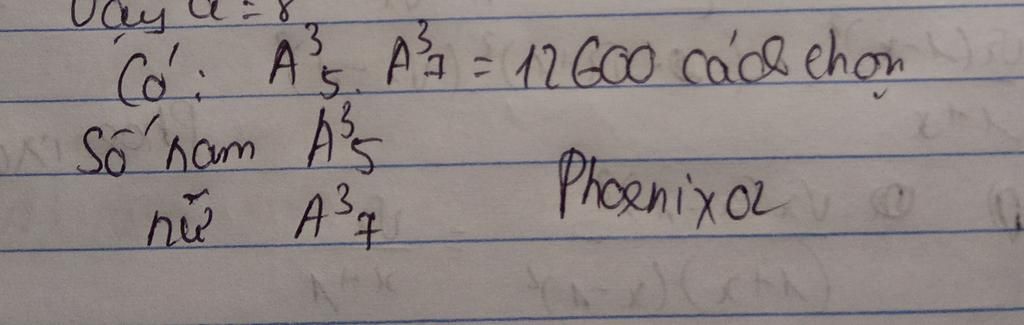 Vậy a = 8
Có: A³₅. A³₇ = 12600 cách chọn
Số nam A³₅
nữ A³₇
Phoenix02